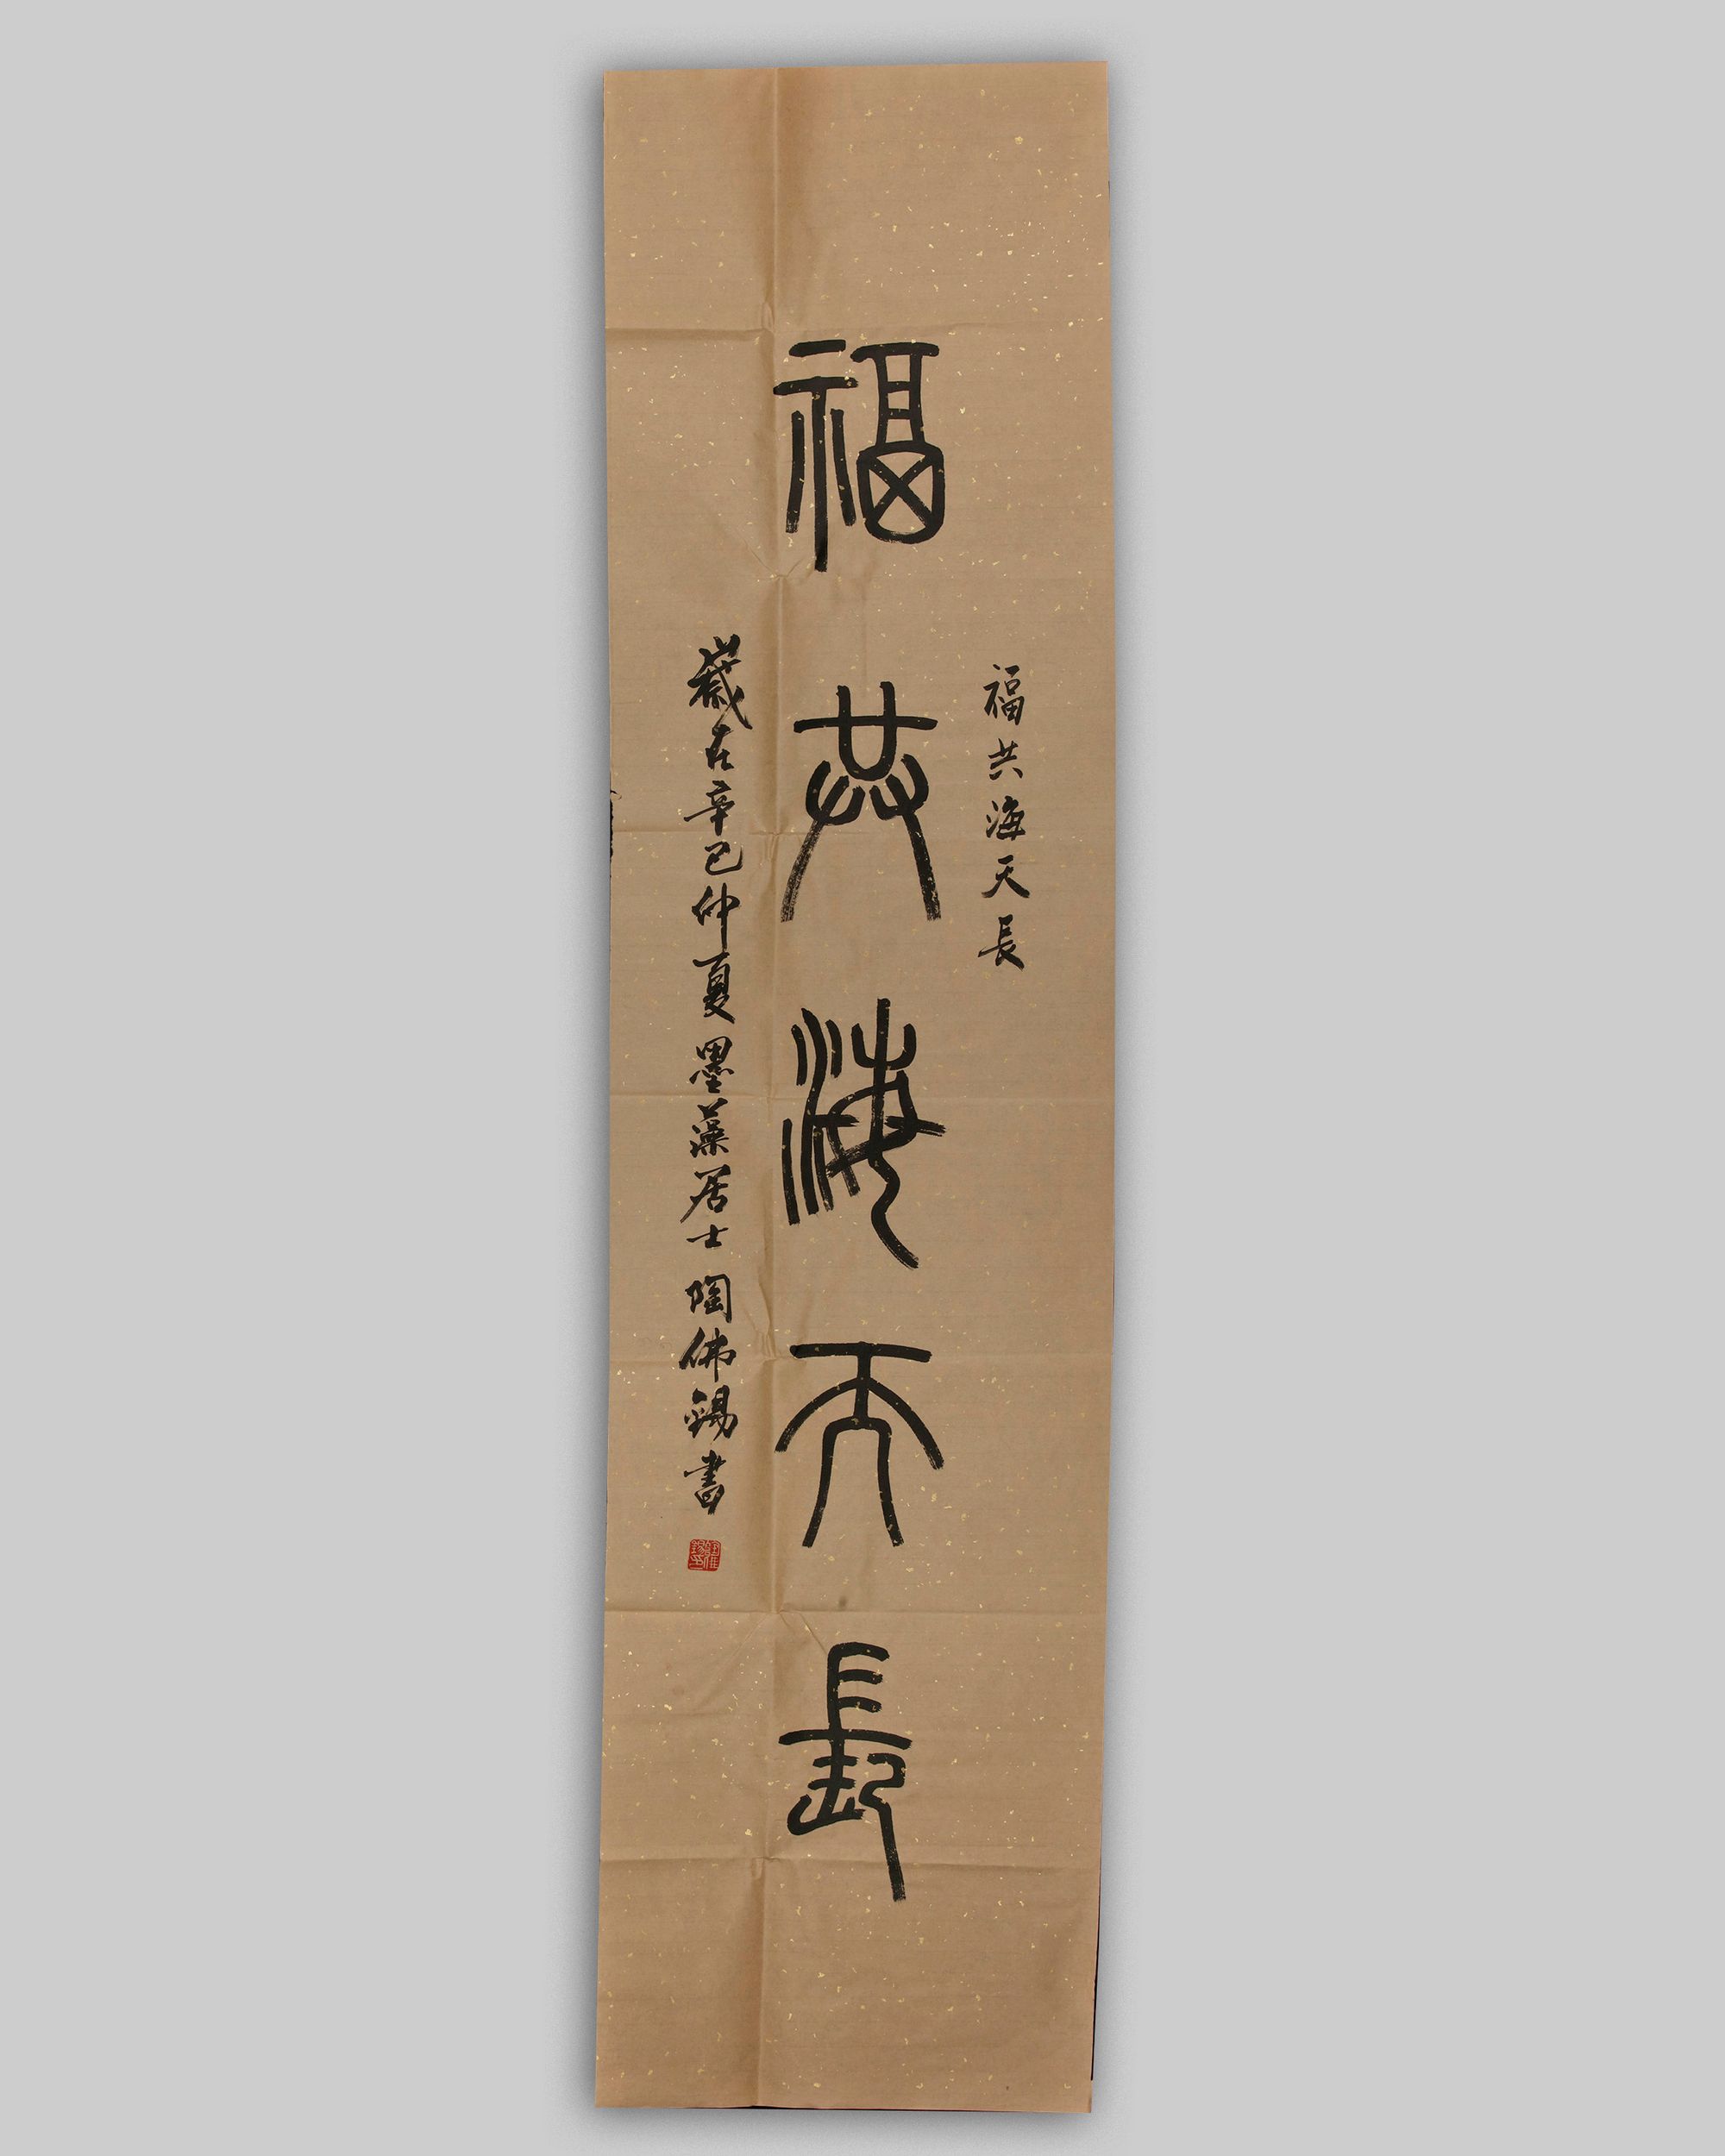 福共海天長
福共海天長
歲在辛巳仲夏墨藻居士陶佛錫書